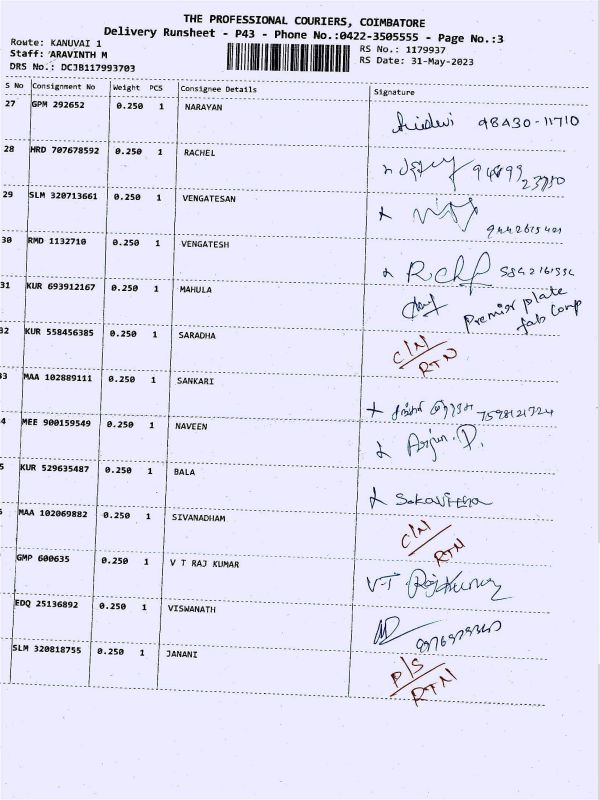 THE PROFESSIONAL COURIERS, COIMBATORE
Delivery Runsheet - P43 - Phone No.:0422-3505555 - Page No.:3
Route: KANUVAI 1
Staff: ARAVINTH M
RS No.: 1179937
DRS No.: DCJB117993703
RS Date: 31-May-2023
S No Consignment No Weight PCS Consignee Details Signature
27 GPM 292652 0.250 1 NARAYAN 98430-11710
28 HRD 707678592 0.250 1 RACHEL
29 SLM 320713661 0.250 1 VENGATESAN
30 RMD 1132710 0.250 1 VENGATESH
31 KUR 693912167 0.250 1 MAHULA Premier plate
fab Corp
32 KUR 558456385 0.250 1 SARADHA C/N
RTN
33 MAA 102889111 0.250 1 SANKARI
4 MEE 900159549 0.250 1 NAVEEN Arjun.P.
5 KUR 529635487 0.250 1 BALA
MAA 102069882 0.250 1 SIVANADHAM C/N
RTN
GMP 600635 0.250 1 V T RAJ KUMAR V-T Rajkumar
EDQ 25136892 0.250 1 VISWANATH
SLM 320818755 0.250 1 JANANI P/S
RTN